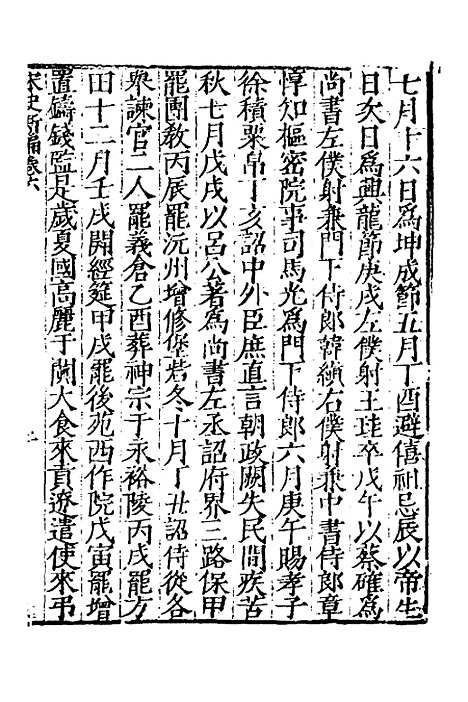 七月十六日爲坤成節五月丁酉避僖祖忌辰以帝生
日次日爲興龍節庚戌左僕射王珪卒戊午以蔡確爲
尚書左僕射兼門下侍郎韓縝右僕射兼中書侍郎章
惇知樞密院事司馬光爲門下侍郎六月庚午賜孝子
徐積粟帛丁亥詔中外臣庶直言朝政闕失民間疾苦
秋七月戊戌以呂公著爲尚書左丞詔府界三路保甲
罷團教丙辰罷沅州增修堡砦冬十月丁丑詔侍從各
舉諫官二人罷義倉乙酉葬神宗于永裕陵丙戌罷方
田十二月壬戌開經筵甲戌罷後苑西作院戊寅罷增
置鑄錢監是歲夏國高麗于闐大食來貢遼遣使來弔
宋史新編卷六